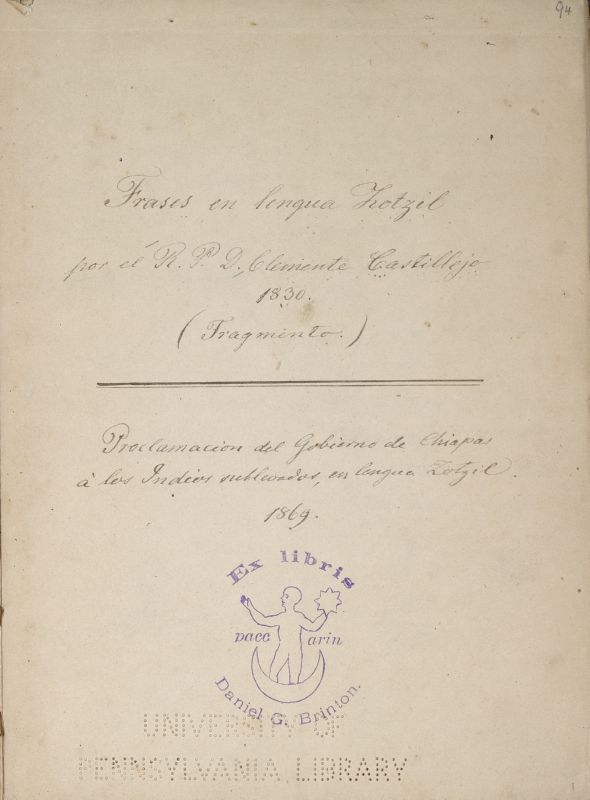 94
Frases en lengua Zotzil
por él R. P. D. Clemente Castillejo
1830.
(Fragmento.)
Proclamacion del Gobierno de Chiapas
á los Indios sublevados, en lengua Zotzil.
1869.
Ex libris
pacc arin
Daniel G. Brinton.
UNIVERSITY OF
PENNSYLVANIA LIBRARY